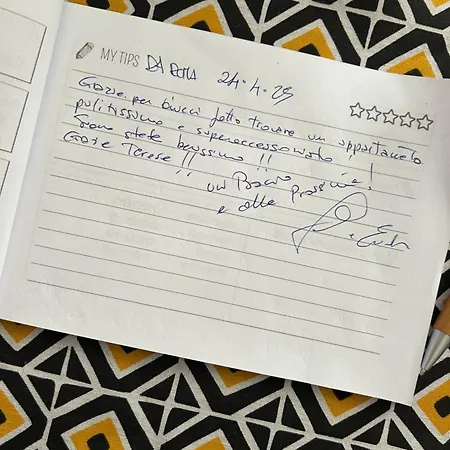 MY TIPS DA ROMA 24.4.25
Grazie per averci fatto trovare un appartamento
pulitissimo e superaccessoriato !
Siamo state benissimo !!
Grazie Terese !! un Bacio
e alla prossima!